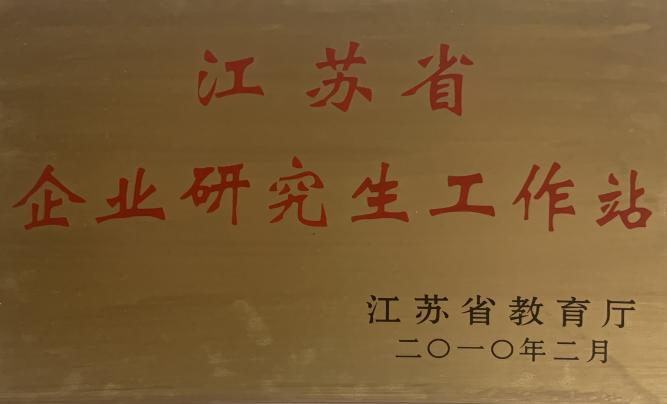 江苏省
企业研究生工作站
江苏省教育厅
二〇一〇年二月